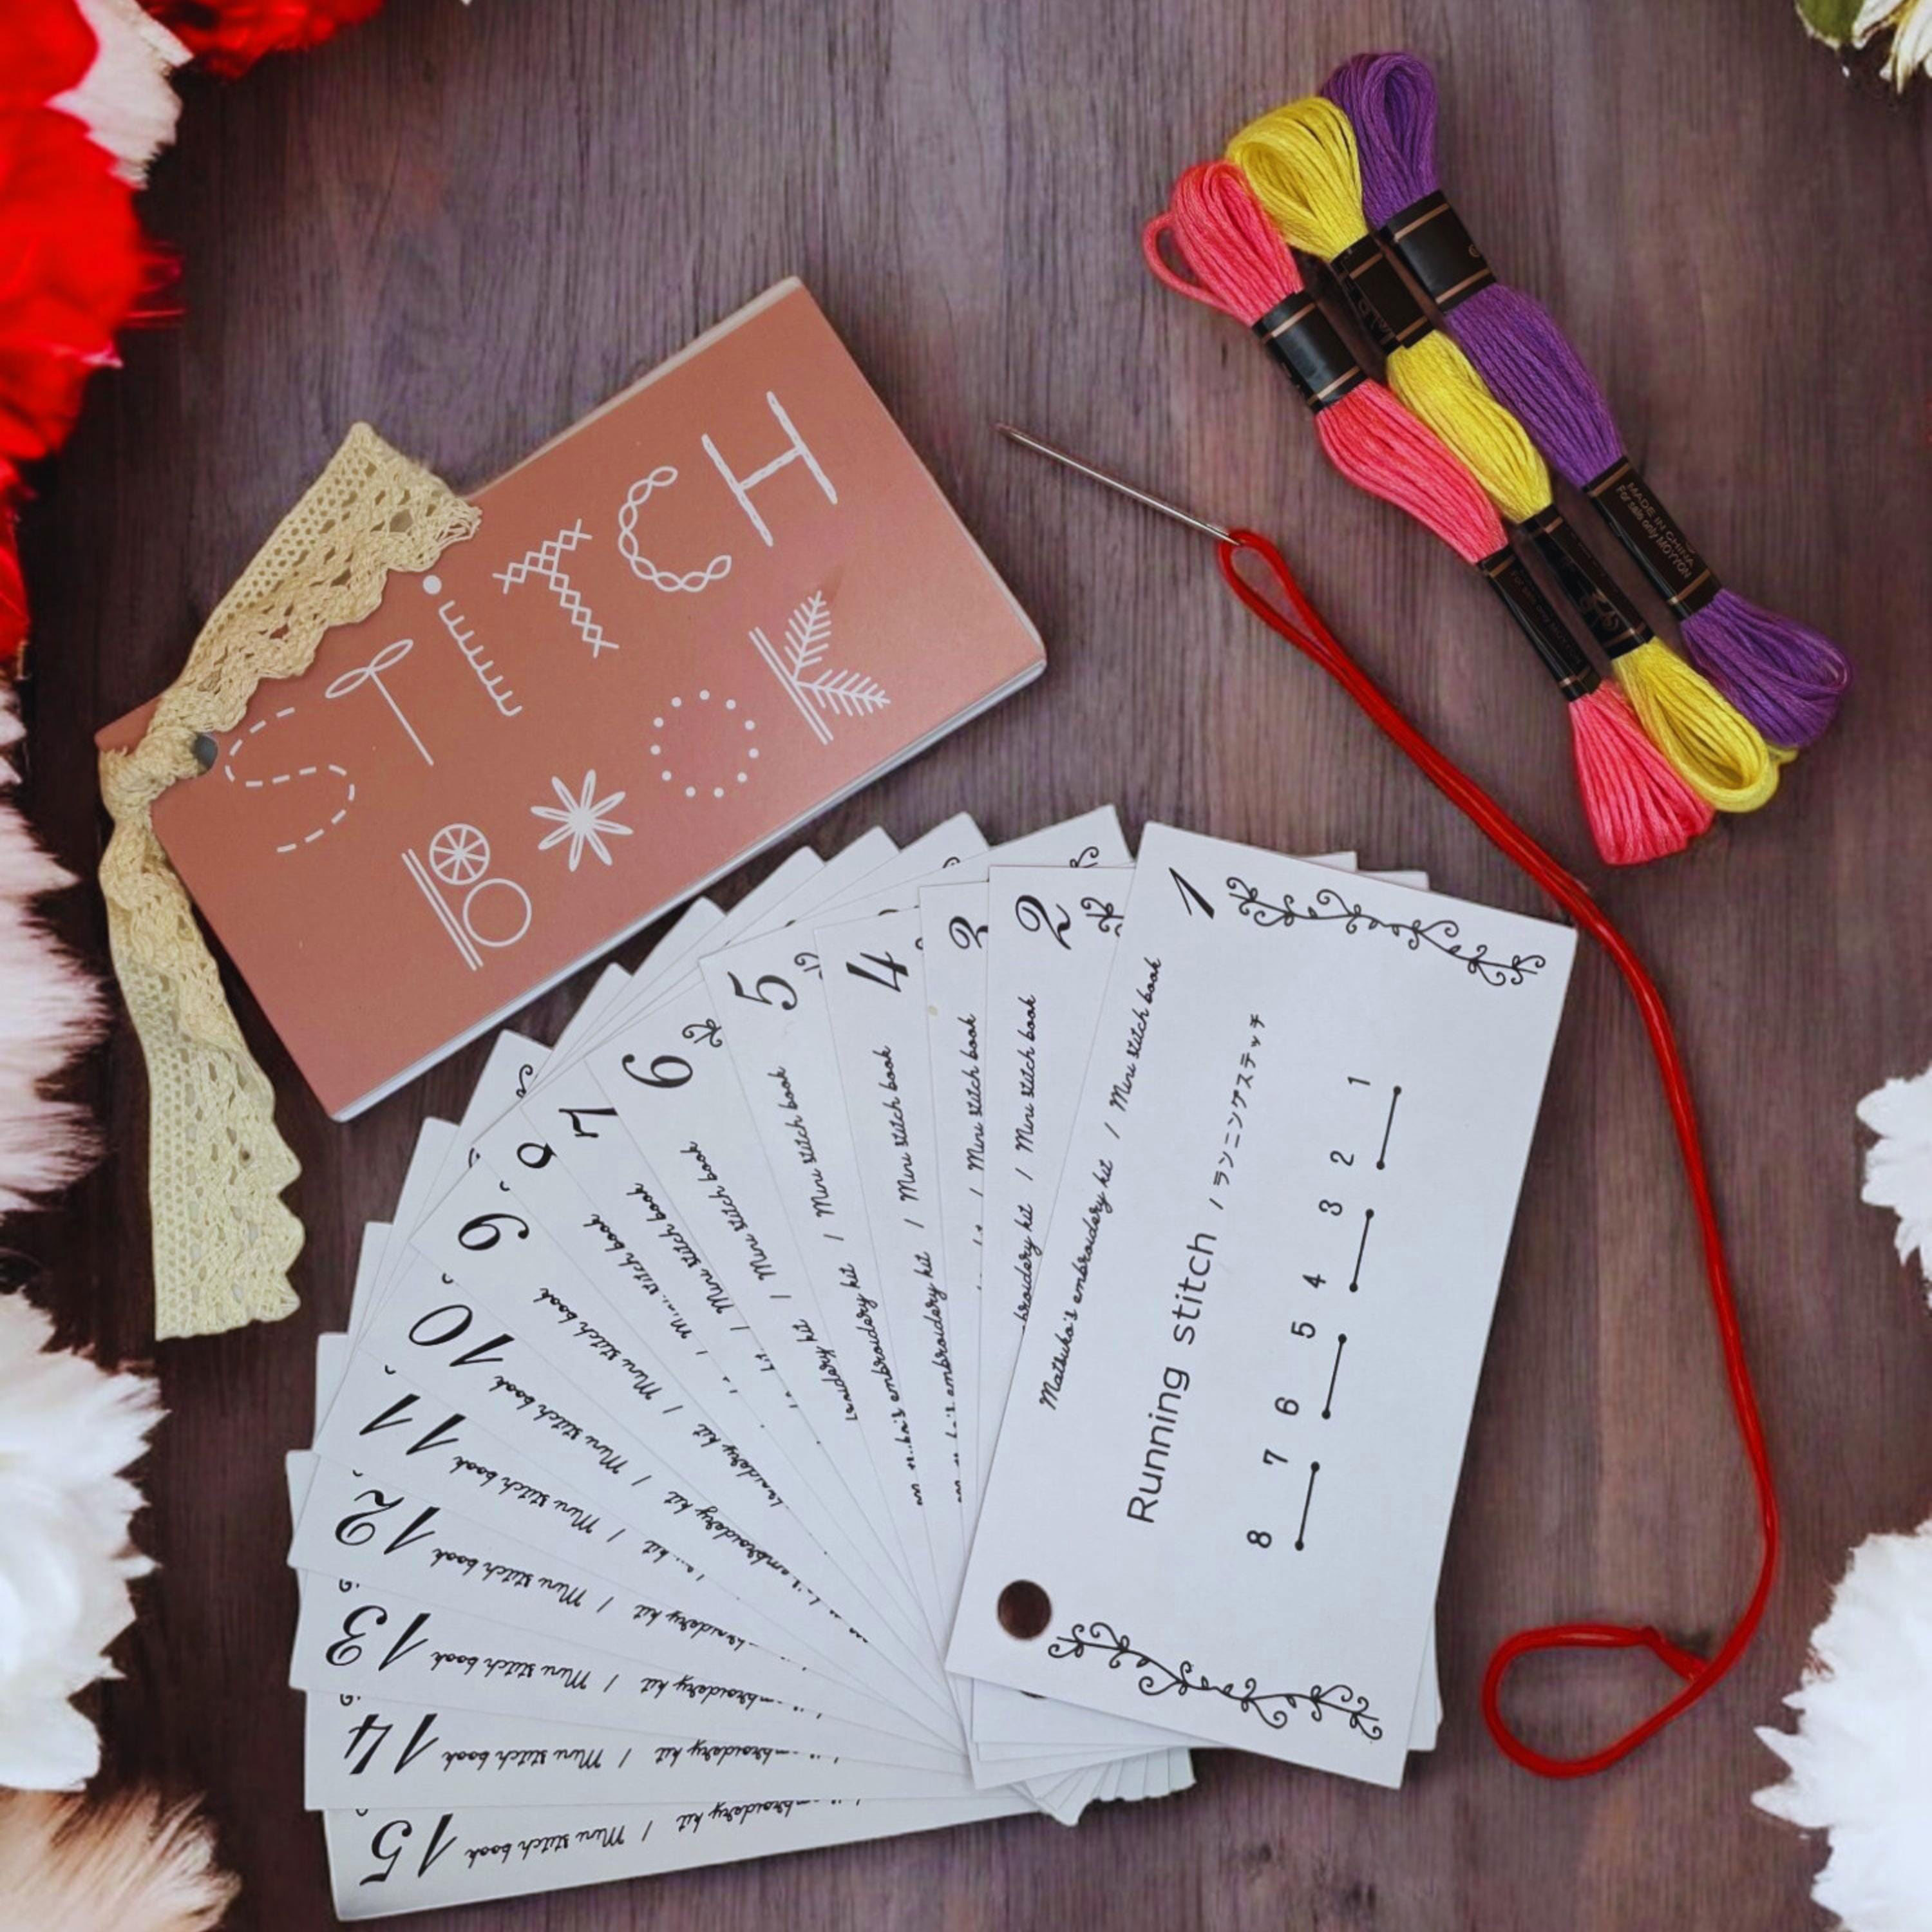 STiTCH
BOOK
MADE IN CHINA
For sale only MOYYON
1
Matsuko's embroidery kit / Mini stitch book
Running stitch / ランニングステッチ
8 7 6 5 4 3 2 1
2
broidery kit / Mini stitch book
3
/ Mini stitch book
4
embroidery kit / Mini stitch book
5
embroidery kit / Mini stitch book
6
kit / Mini stitch book
7
/ Mini stitch book
8
/ Mini stitch book
9
kit / Mini stitch book
10
embroidery kit / Mini stitch book
11
kit / Mini stitch book
12
broidery kit / Mini stitch book
13
embroidery kit / Mini stitch book
14
mbroidery kit / Mini stitch book
15
embroidery kit / Mini stitch book